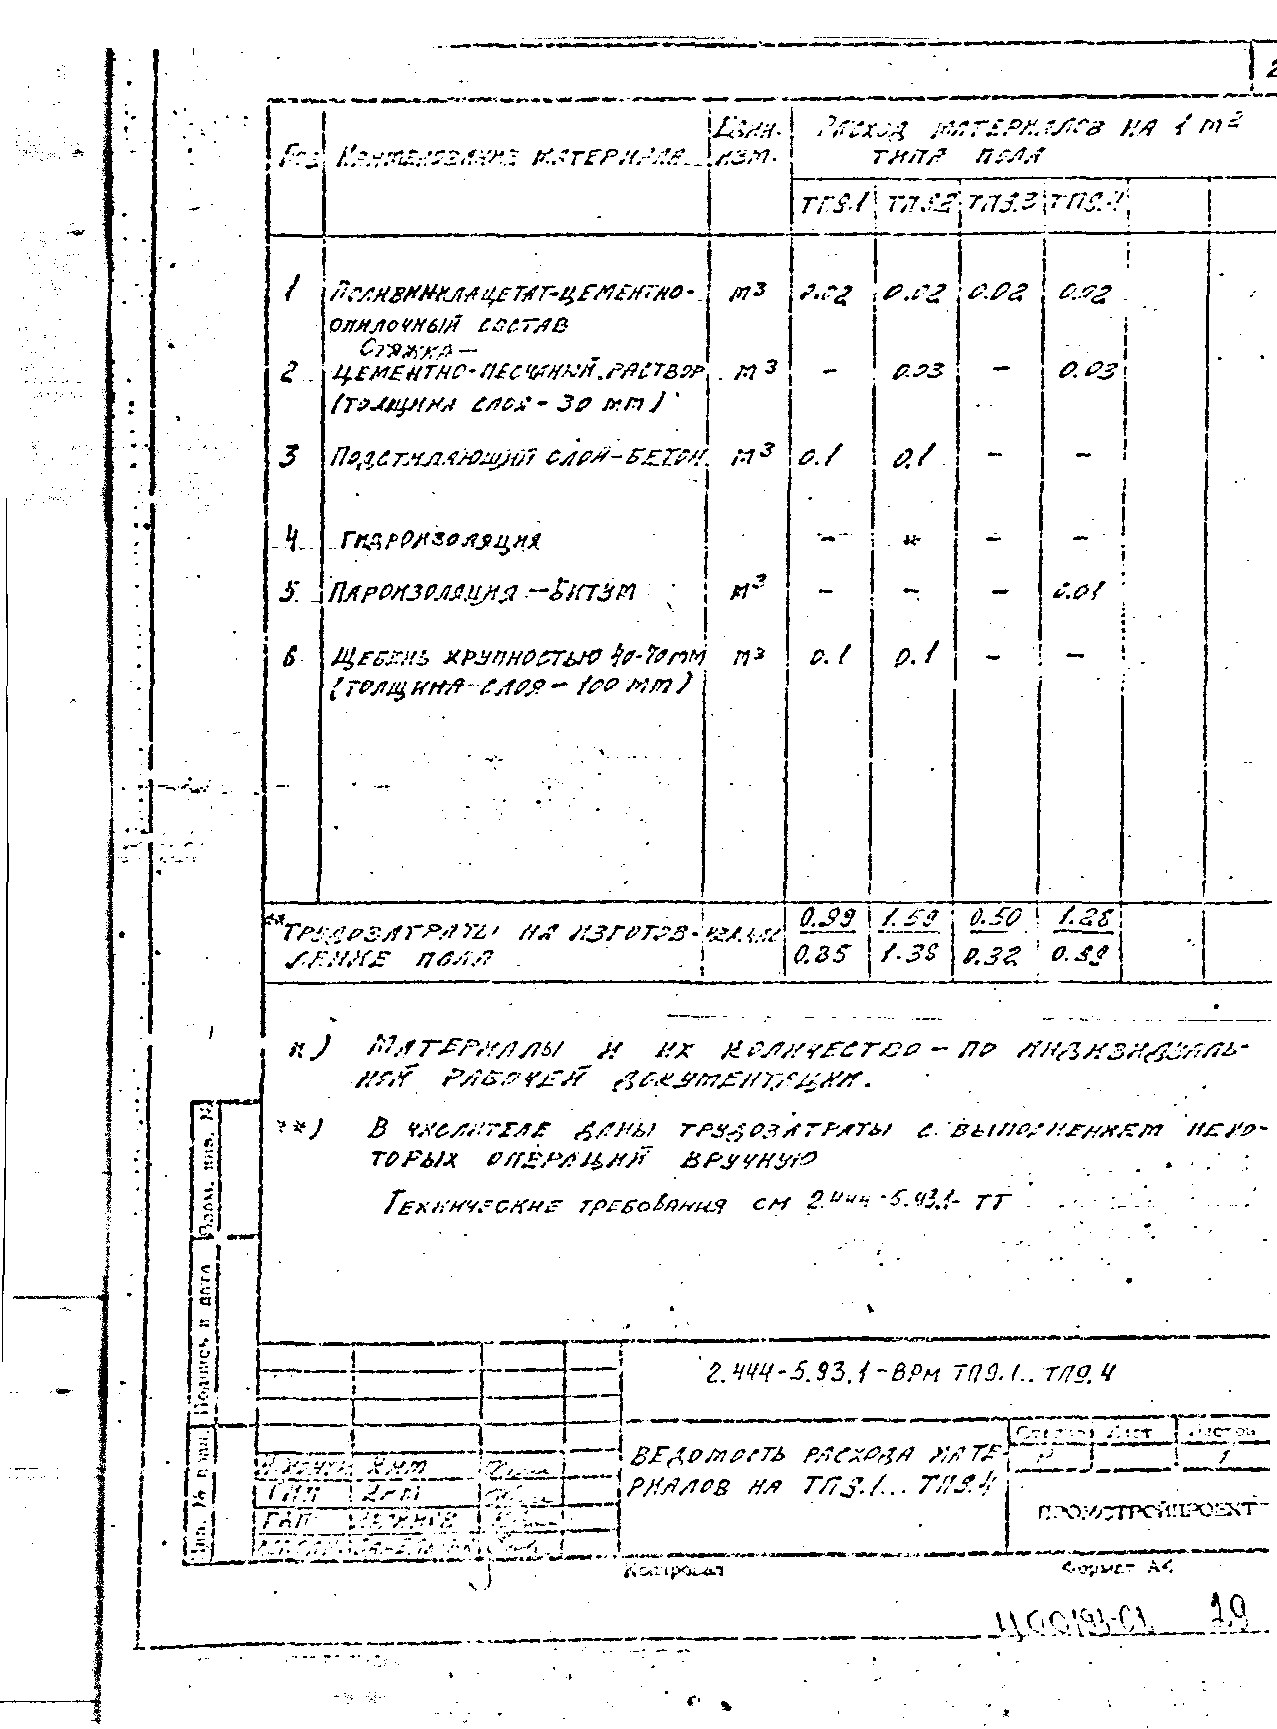 2
Поз. Наименование материала Един. изм. Расход материалов на 1 м2 типа пола
ТП9.1 ТП9.2 ТП9.3 ТП9.4
1 Поливинилацетат-цементно- м3 0.02 0.02 0.02 0.02
опилочный состав
Стяжка –
2 цементно-песчаный раствор м3 – 0.03 – 0.03
(толщина слоя – 30 мм)
3 Подстилающий слой – бетон м3 0.1 0.1 – –
4 Гидроизоляция – * – –
5 Пароизоляция – битум м3 – – – 0.01
6 Щебень крупностью 40-70 мм м3 0.1 0.1 – –
(толщина слоя – 100 мм)
**Трудозатраты на изготов- 0.99 1.59 0.50 1.28
ление пола 0.85 1.38 0.32
*) Материалы и их количество – по индивидуаль-
ной рабочей документации.
**) В числителе даны трудозатраты с выполнением неко-
торых операций вручную
Технические требования см 2.444-5.93.1- ТТ
Взам. инв. №
Подпись и дата
Инв. № подл.
2.444-5.93.1-ВРМ ТП9.1.. ТП9.4
Ведомость расхода мате-
риалов на ТП9.1... ТП9.4
Стадия Лист Листов
Р 1
ПРОМСТРОЙПРОЕКТ
ГИП
ГАП
Копировал Формат А4
Ц00193-01 19